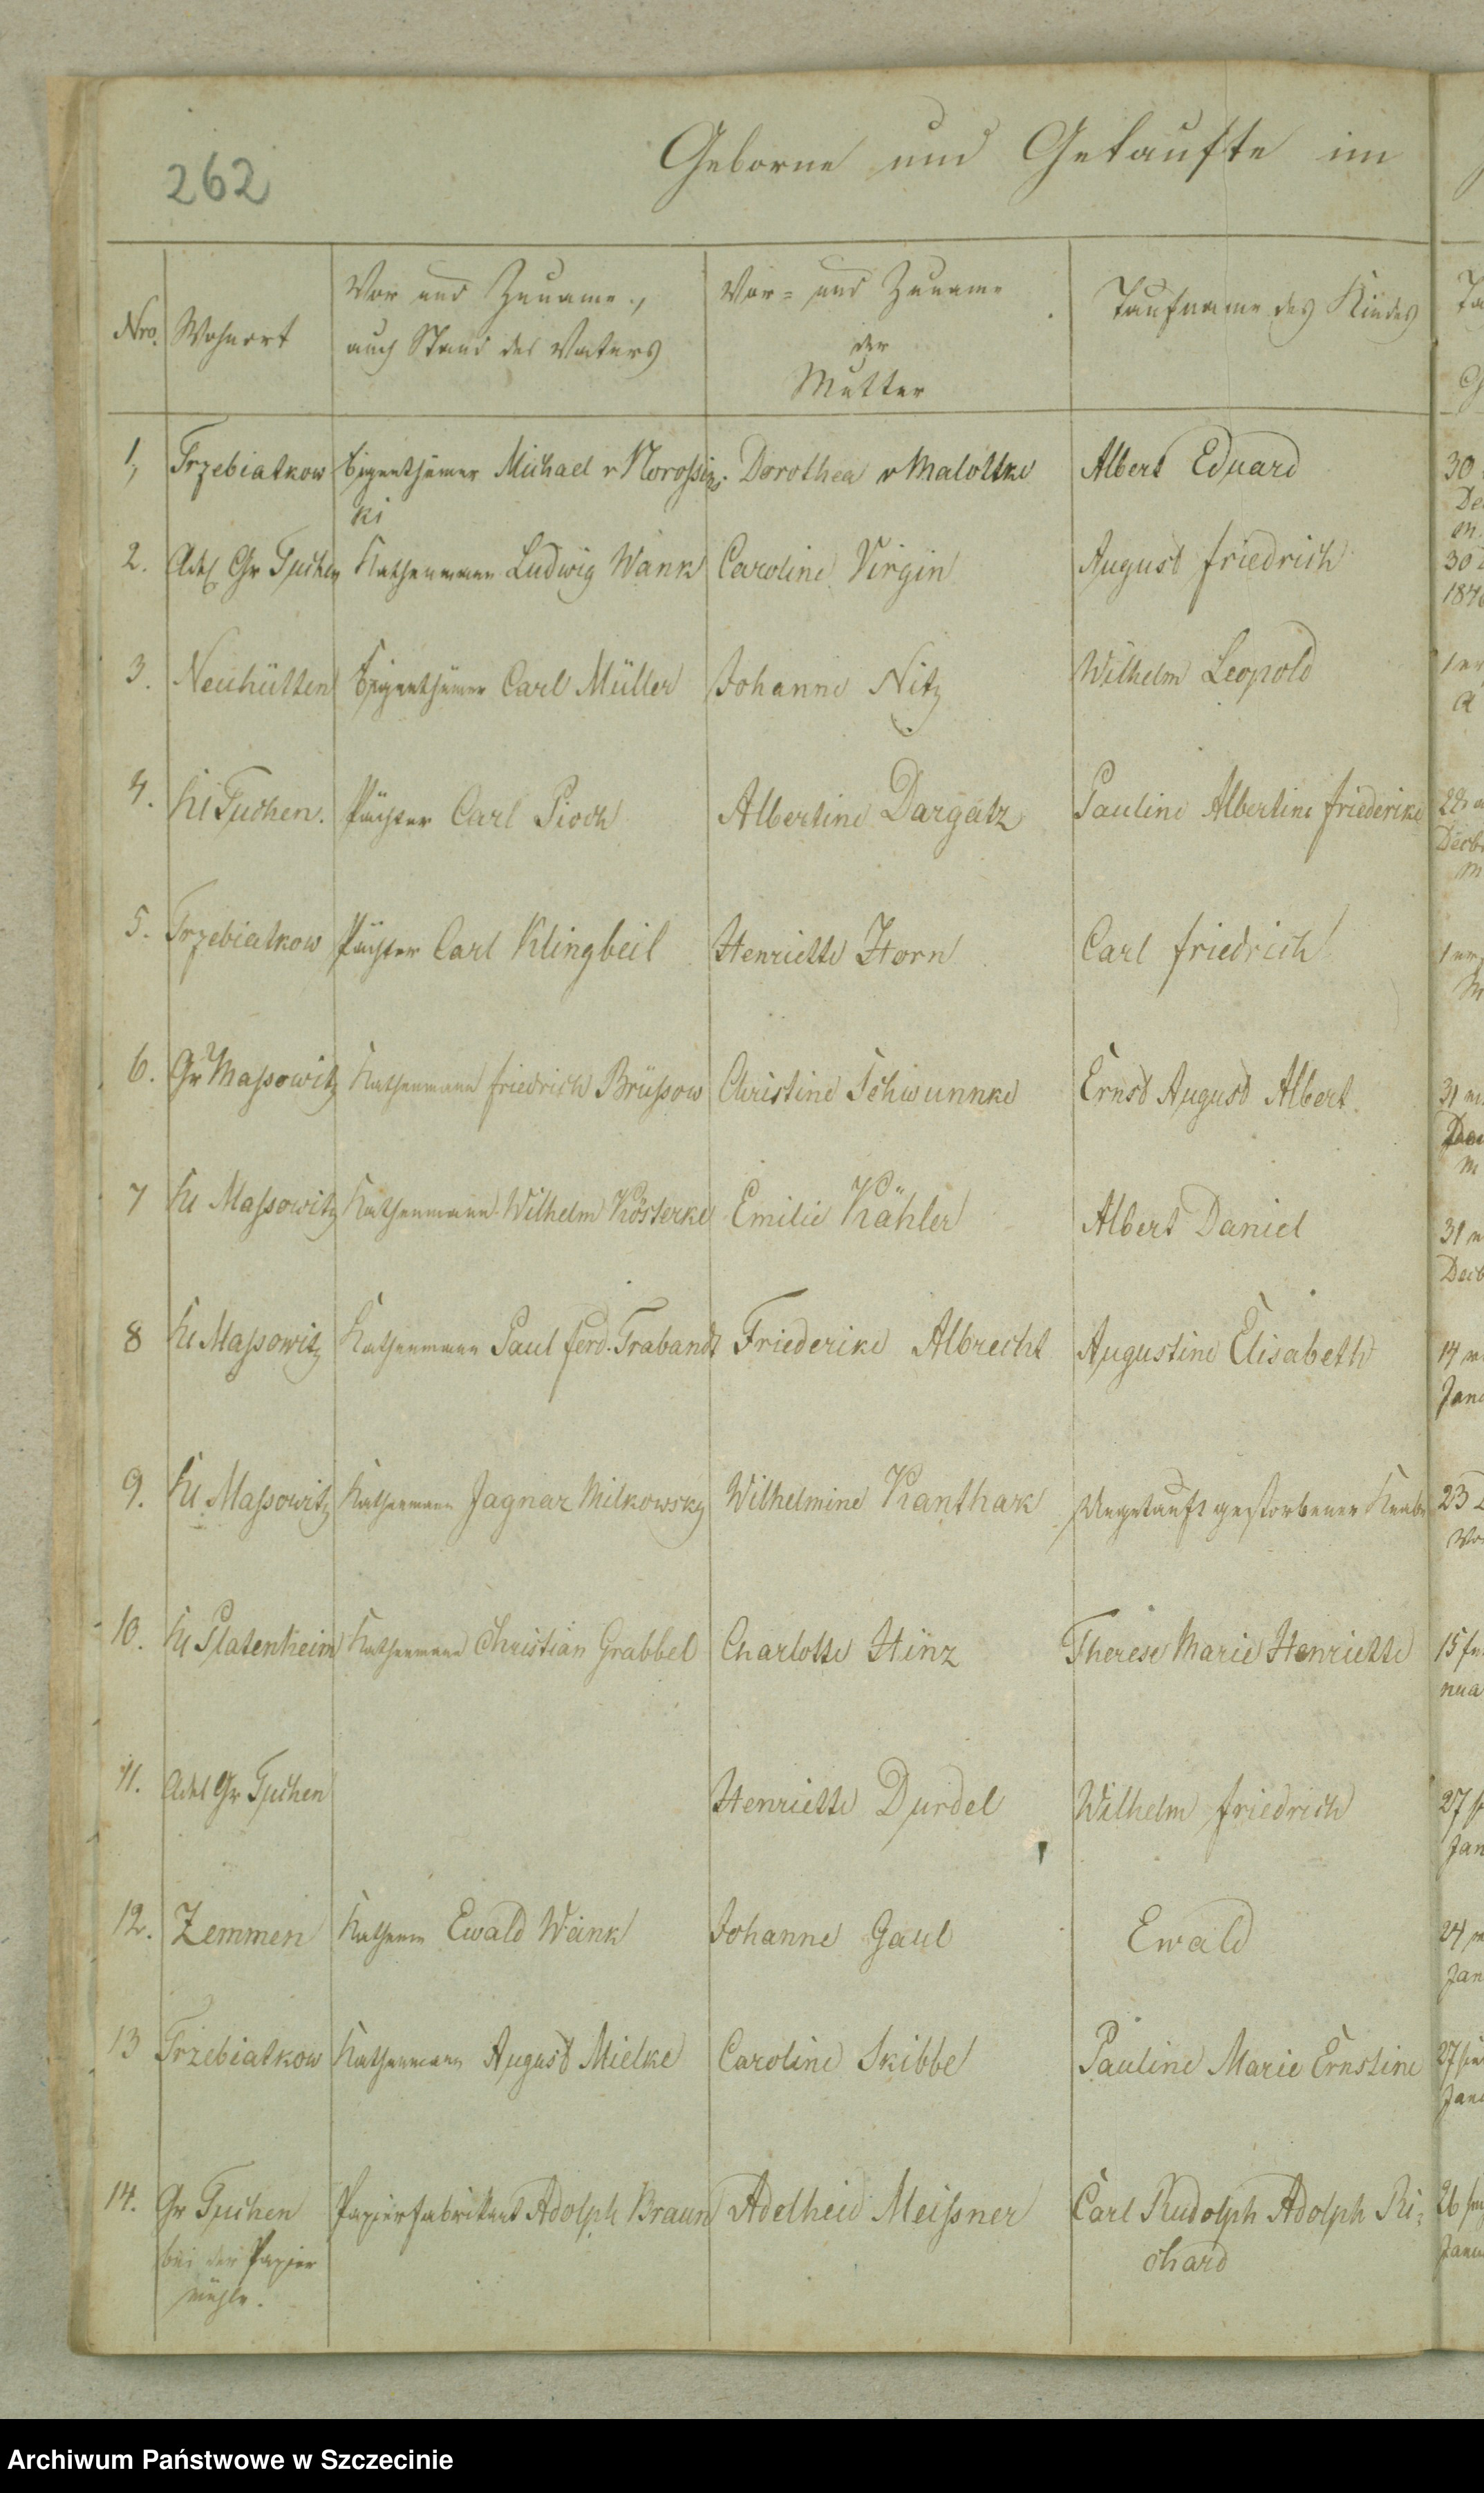 262
Geborne und Getaufte im
Nro. Wohnort Vor und Zuname, Vor- und Zuname Taufname des Kindes
auch Stand des Vaters der
Mutter
1, Trzebiatkow Eigenthümer Michael v Dorothea v Malottke Albert Eduard 30
ki
2. Adel Gr Tuchen Kathenmann Ludwig Wank Caroline Virgin August Friedrich 30
3. Neuhütten Eigenthümer Carl Müller Johanne Nitz Wilhelm Leopold
4. Kl Tuchen. Pächter Carl Pioch Albertine Dargatz Pauline Albertine Friederike
5. Trzebiatkow Pächter Carl Klingbeil Henriette Horn Carl Friedrich
6. Gr Maßowitz Kathenmann Friedrich Brüßow Christine Schwunnke Ernst August Albert 31
7 Kl Maßowitz Kathenmann Wilhelm Kösterke Emilie Kähler Albert Daniel 31
8 Kl Maßowitz Kathenmann Paul Ferd. Trabandt Friederike Albrecht Augustine Elisabeth 14
9. Kl Maßowitz Kathenmann Jagnaz Milkowsky Wilhelmine Kanthak Ungetauft gestorbener Knabe 23
10. Kl Platenheim Kathenmann Christian Grabbel Charlotte Hinz Therese Marie Henriette 15
11. Adel Gr Tuchen Henriette Durdel Wilhelm Friedrich 27
12. Zemmen Kathenm Ewald Wank Johanne Gaul Ewald 24
13 Trzebiatkow Kathenmann August Mielke Caroline Skibbe Pauline Marie Ernstine 27
14. Gr Tuchen Papierfabrikant Adolph Braun Adelheid Meißner Carl Rudolph Adolph Ri- 26
bei der Papier chard
mühle.
Archiwum Państwowe w Szczecinie